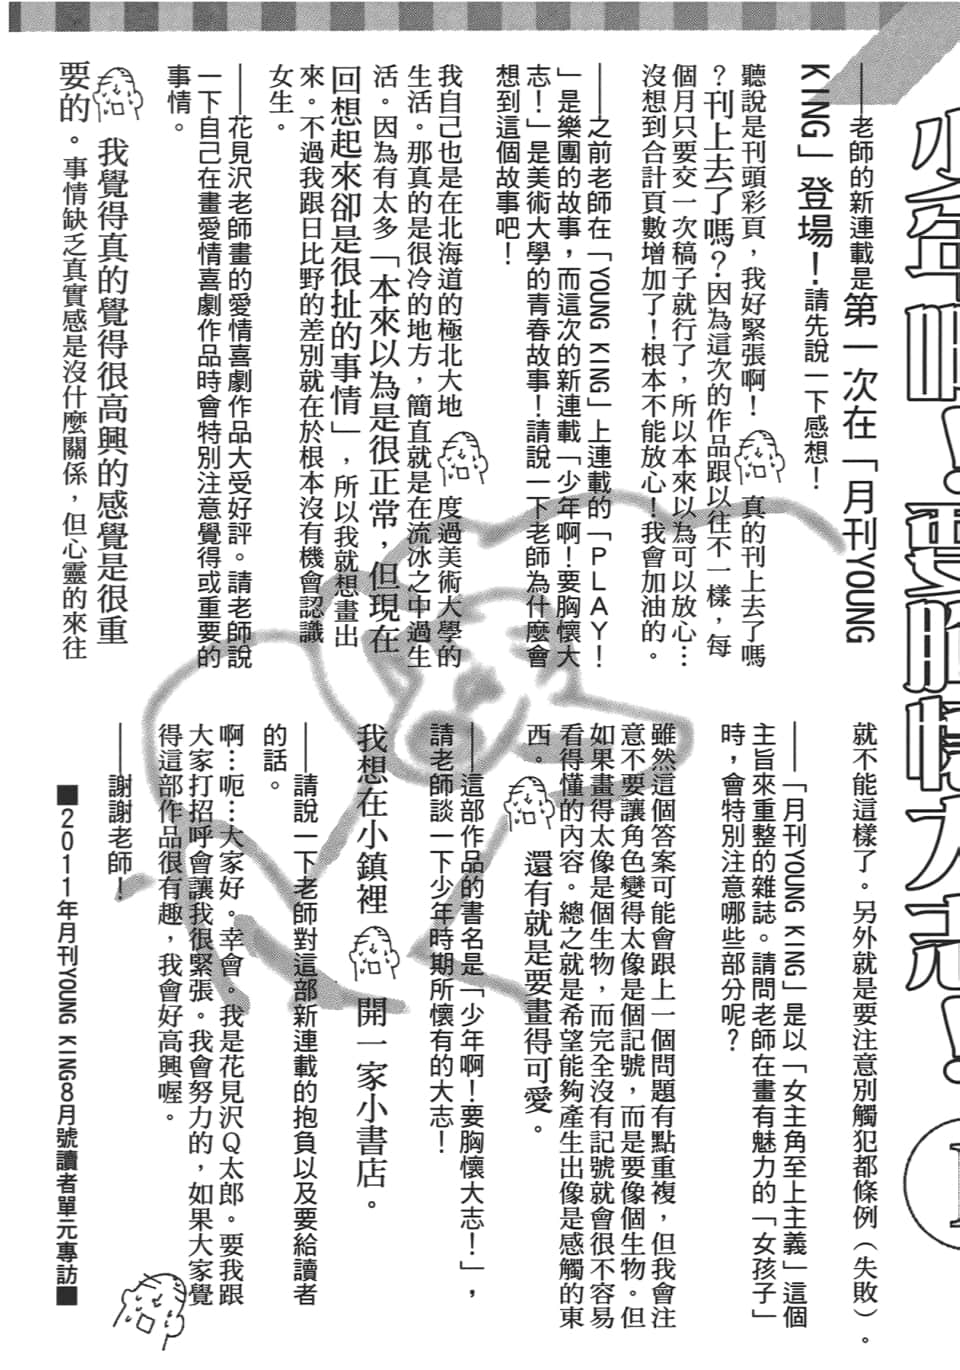 少年啊！要胸懷大志！
——老師的新連載是第一次在「月刊YOUNG
KING」登場！請先說一下感想！
聽說是刊頭彩頁，我好緊張啊！真的刊上去了嗎
？刊上去了嗎？因為這次的作品跟以往不一樣，每
個月只要交一次稿子就行了，所以本來以為可以放心…
沒想到合計頁數增加了！根本不能放心！我會加油的。
——之前老師在「YOUNG KING」上連載的「PLAY！
」是樂團的故事，而這次的新連載「少年啊！要胸懷大
志！」是美術大學的青春故事！請說一下老師為什麼會
想到這個故事吧！
我自己也是在北海道的極北大地度過美術大學的
生活。那真的是很冷的地方，簡直就是在流冰之中過生
活。因為有太多「本來以為是很正常，但現在
回想起來卻是很扯的事情」，所以我就想畫出
來。不過我跟日比野的差別就在於根本沒有機會認識
女生。
——花見沢老師畫的愛情喜劇作品大受好評。請老師說
一下自己在畫愛情喜劇作品時會特別注意覺得或重要的
事情。
我覺得真的覺得很高興的感覺是很重
要的。事情缺乏真實感是沒什麼關係，但心靈的來往
就不能這樣了。另外就是要注意別觸犯都條例（失敗）。
——「月刊YOUNG KING」是以「女主角至上主義」這個
主旨來重整的雜誌。請問老師在畫有魅力的「女孩子」
時，會特別注意哪些部分呢？
雖然這個答案可能會跟上一個問題有點重複，但我會注
意不要讓角色變得太像是個記號，而是要像個生物。但
如果畫得太像是個生物，而完全沒有記號就會很不容易
看得懂的內容。總之就是希望能夠產生出像是感觸的東
西。還有就是要畫得可愛。
——這部作品的書名是「少年啊！要胸懷大志！」，
請老師談一下少年時期所懷有的大志！
我想在小鎮裡開一家小書店。
——請說一下老師對這部新連載的抱負以及要給讀者
的話。
啊…呃…大家好。幸會。我是花見沢Q太郎。要我跟
大家打招呼會讓我很緊張。我會努力的，如果大家覺
得這部作品很有趣，我會好高興喔。
——謝謝老師！
■2011年月刊YOUNG KING8月號讀者單元專訪■